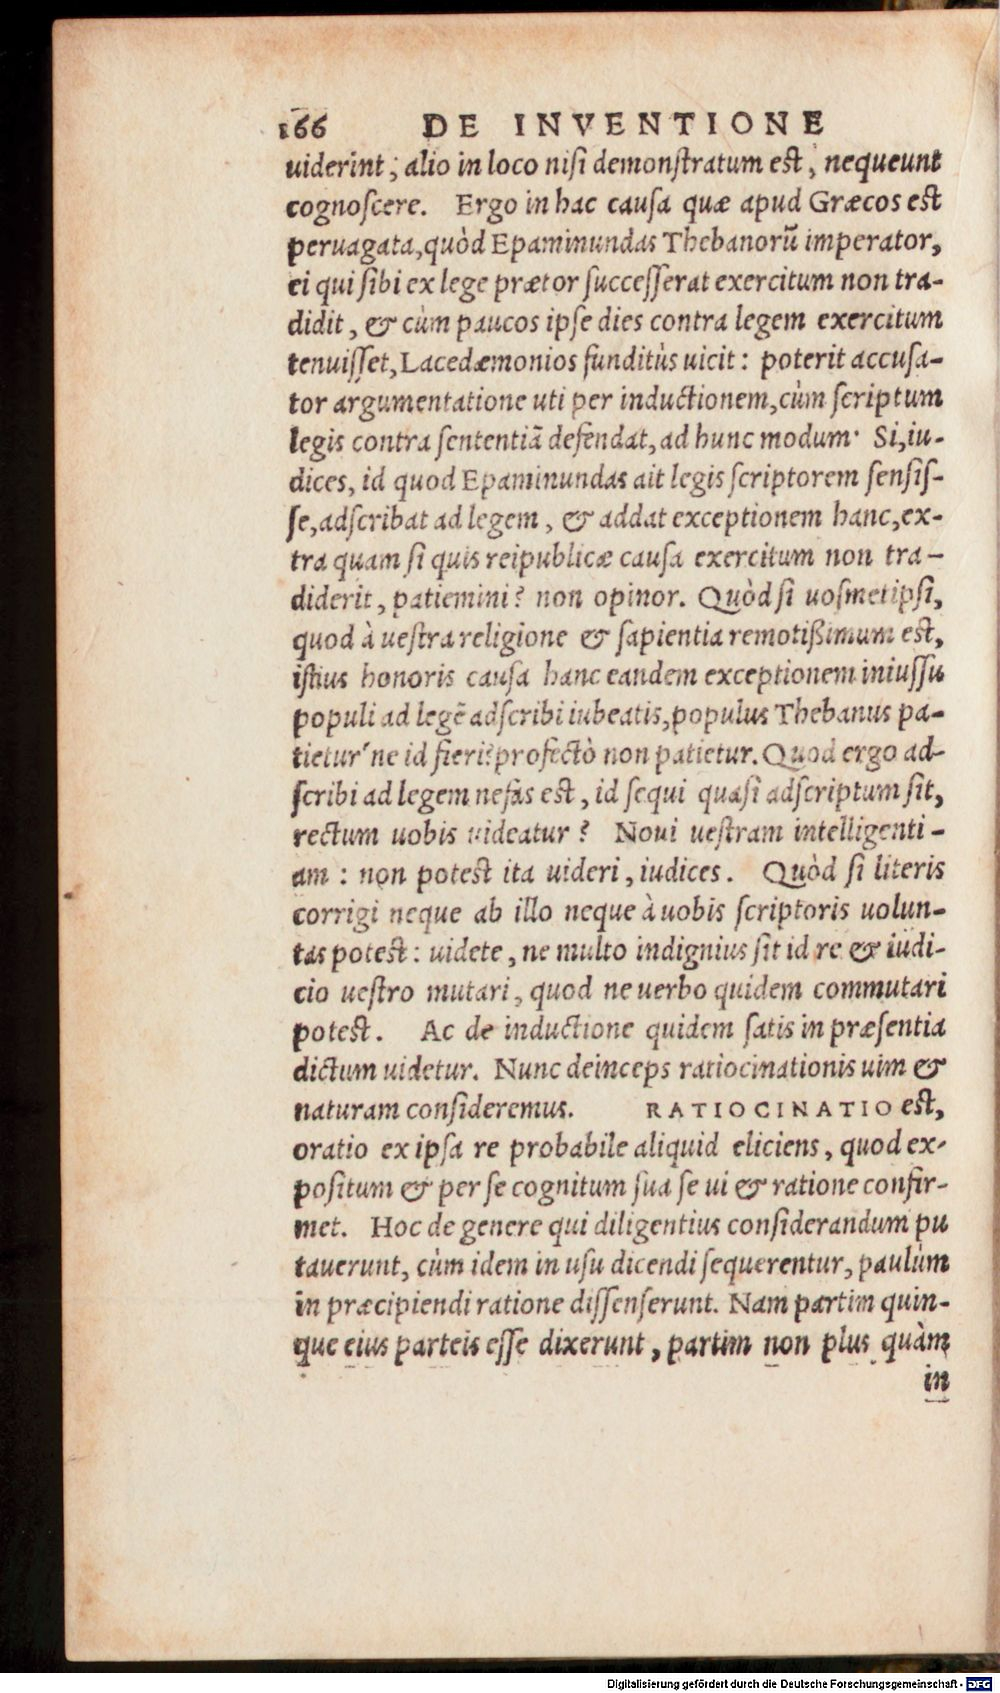 166 DE INVENTIONE
uiderint; alio in loco nisi demonstratum est, nequeunt
cognoscere. Ergo in hac causa quæ apud Græcos est
peruagata, quòd Epaminundas Thebanorũ imperator,
ei qui sibi ex lege prætor successerat exercitum non tra-
didit, & cùm paucos ipse dies contra legem exercitum
tenuisset, Lacedæmonios funditùs uicit: poterit accusa-
tor argumentatione uti per inductionem, cùm scriptum
legis contra sententiã defendat, ad hunc modum· Si, iu-
dices, id quod Epaminundas ait legis scriptorem sensis-
se, adscribat ad legem, & addat exceptionem hanc, ex-
tra quam si quis reipublicæ causa exercitum non tra-
diderit, patiemini? non opinor. Quòd si uosmetipsi,
quod à uestra religione & sapientia remotißimum est,
istius honoris causa hanc eandem exceptionem iniussu
populi ad legẽ adscribi iubeatis, populus Thebanus pa-
tietur'ne id fieri? profectò non patietur. Quod ergo ad-
scribi ad legem nefas est, id sequi quasi adscriptum sit,
rectum uobis uideatur? Noui uestram intelligenti-
am: non potest ita uideri, iudices. Quòd si literis
corrigi neque ab illo neque à uobis scriptoris uolun-
tas potest: uidete, ne multo indignius sit id re & iudi-
cio uestro mutari, quod ne uerbo quidem commutari
potest. Ac de inductione quidem satis in præsentia
dictum uidetur. Nunc deinceps ratiocinationis uim &
naturam consideremus. RATIOCINATIO est,
oratio ex ipsa re probabile aliquid eliciens, quod ex-
positum & per se cognitum sua se ui & ratione confir-
met. Hoc de genere qui diligentius considerandum pu
tauerunt, cùm idem in usu dicendi sequerentur, paulùm
in præcipiendi ratione dissenserunt. Nam partim quin-
que eius parteis esse dixerunt, partim non plus quàm
in
Digitalisierung gefördert durch die Deutsche Forschungsgemeinschaft - DFG